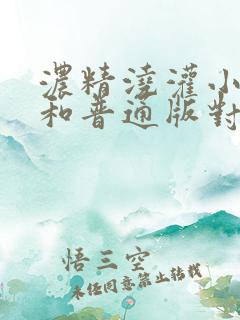 濃精澆灌小
和普通版對
悟三空
未經同意禁止轉載